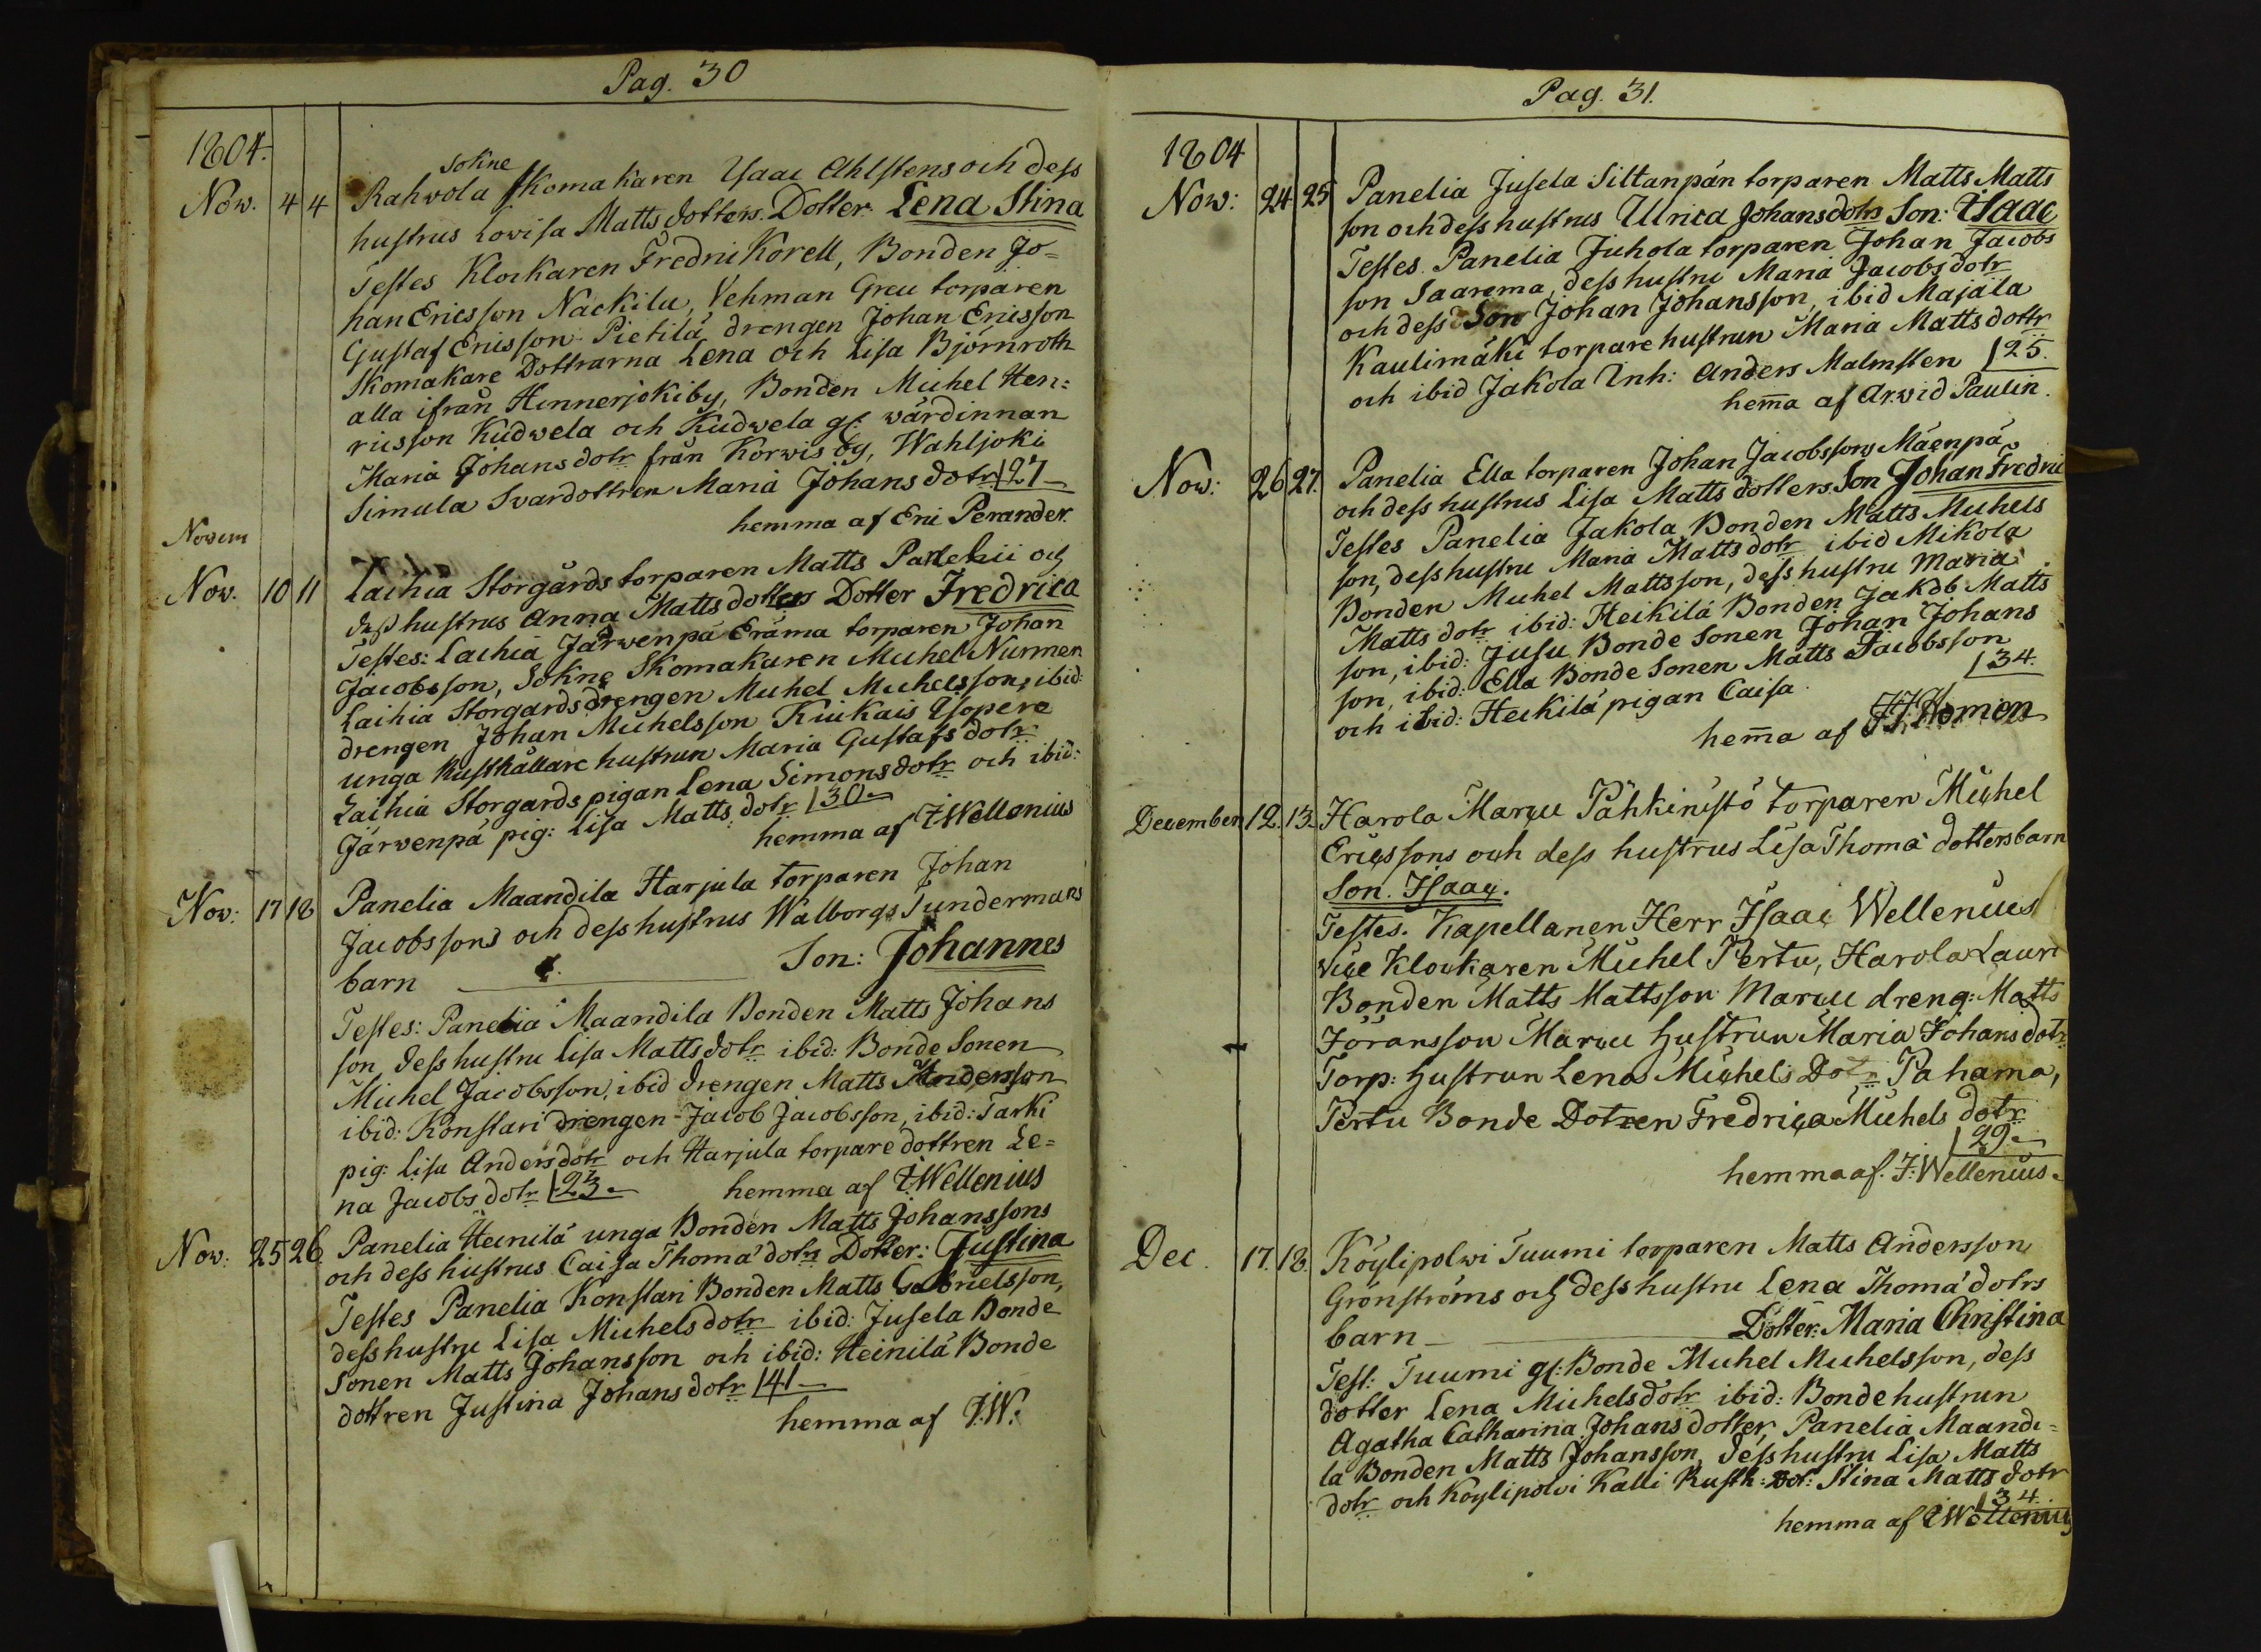 Pag. 30
1804.
sokne
Nov. 4 4 Rahvola Skomakaren Isaac Ahlstens och dess
hustrus Lovisa Mattsdotters. Dotter Lena Stina
Testes Klockaren Fredric Korell, Bonden Jo=
han Ericsson Nackila, Vehman Greu torparen
Gustaf Ericsson Pietilä drengen Johan Ericsson
Skomakare Dottrarna Lena och Lisa Björnroth
alla ifrån Hinnerjokiby, Bonden Michel Hen=
ricsson Kudvela och Kudvela gl: wärdinnan
Maria Johansdotr från Korwis by, Wahljoki
Simula Svardottren Maria Johansdotr. 27
hemma af Eric Perander.
Novem
Nov. 10 11 Laihia Storgårds torparen Matts Panelii och
dess hustrus Anna Mattsdotters Dotter Fredrica
Testes: Laihia Järwenpä Eräma torparen Johan
Jacobsson, Sokne Skomakaren Michel Nurmen
Laihia Storgardsdrengen Michel Michelsson, ibid:
drengen Johan Michelsson Kiukais Isopere
unga Rusthållare hustrun Maria Gustafsdotr
Laihia Storgards pigan Lena Simonsdotr och ibid:
Järwenpä pig: Lisa Matts dotr 30
hemma af I Wellenius
Nov: 17 18 Panelia Maandila Harjula torparen Johan
Jacobssons och dess hustrus Walborgs Tundermans
barn Son: Johannes
Testes: Panelia Maandila Bonden Matts Johans
son, dess hustru Lisa Mattsdotr ibid: Bonde Sonen
Michel Jacobsson, ibid drengen Matts Andersson
ibid: Konstari drengen Jacob Jacobsson, ibid: Tarki
pig: Lisa Andersdotr och Harjula torpare dottren Le=
na Jacobsdotr 23 hemma af I Wellenius
Nov: 25 26 Panelia Heinilä unga Bonden Matts Johanssons
och dess hustrus Caisa Thomædotrs Dotter: Justina
Testes Panelia Konstari Bonden Matts Gabrielsson,
dess hustru Lisa Michelsdotr ibid: Jusela Bonde
Sonen Matts Johansson och ibid: Heinilä Bonde
dottren Justina Johansdotr 41
hemma af I.W.
Pag. 31.
1804
Nov: 24 25 Panelia Jusela Siltanpän torparen Matts Matts
son och dess hustrus Ulrica Johansdotrs Son: Isaac
Testes. Panelia Juhola torparen Johan Jacobs
son Saarema, dess hustru Maria Jacobsdotr
och dess Son Johan Johansson, ibid Majala
Kaulimäki torpare hustrun Maria Mattsdottr
och ibid Jakola Inh: Anders Malmsten 25.
hem̅a af Arvid Paulin.
Nov: 26 27. Panelia Ella torparen Johan Jacobssons Mäenpä
och dess hustrus Lisa Mattsdotters Son Johan Fredric
Testes Panelia Jakola Bonden Matts Michels
son, dess hustru Maria Mattsdotr ibid Mikola
Bonden Michel Mattsson, dess hustru Maria
Matts dotr ibid: Heikilä Bonden Jakob Matts
son, ibid: Jusu Bonde Sonen Johan Johans
son, ibid: Ella Bonde Sonen Matts Jacobsson
och ibid: Heikilä pigan Caisa. 34.
hem̅a af Homen
December 12. 13. Harola Marcu Pähkinistö torparen Michel
Ericssons och dess hustrus Lisa Thomæ dotters barn
Son. Isaac.
Testes. Kapellanen Herr Isaac Wellenius
vice Klockaren Michel Pertu, Harola Lauri
Bonden Matts Mattsson Marcu dreng: Matts
Jöransson Marcu hustrun Maria Johansdotr
Torp: hustrun Lena Michels Dotr Pahama,
Pertu Bonde Dotren Fredrica Michels dotr
29.
hemma af. I: Wellenius.
Dec. 17. 18. Köylipolwi Tuumi torparen Matts Andersson
Grönströms och dess hustru Lena Thomædotrs
barn Dotter: Maria Christina
Test: Tuumi gl: Bonde Michel Michelsson, dess
dotter Lena Michelsdotr ibid: Bonde hustrun
Agatha Catharina Johansdotter, Panelia Maandi=
la Bonden Matts Johansson, dess hustru Lisa Matts
dotr och Köylipolvi Kalli Rusth: Dot: Stina Matts dotr
34.
hemma af I Wellenius